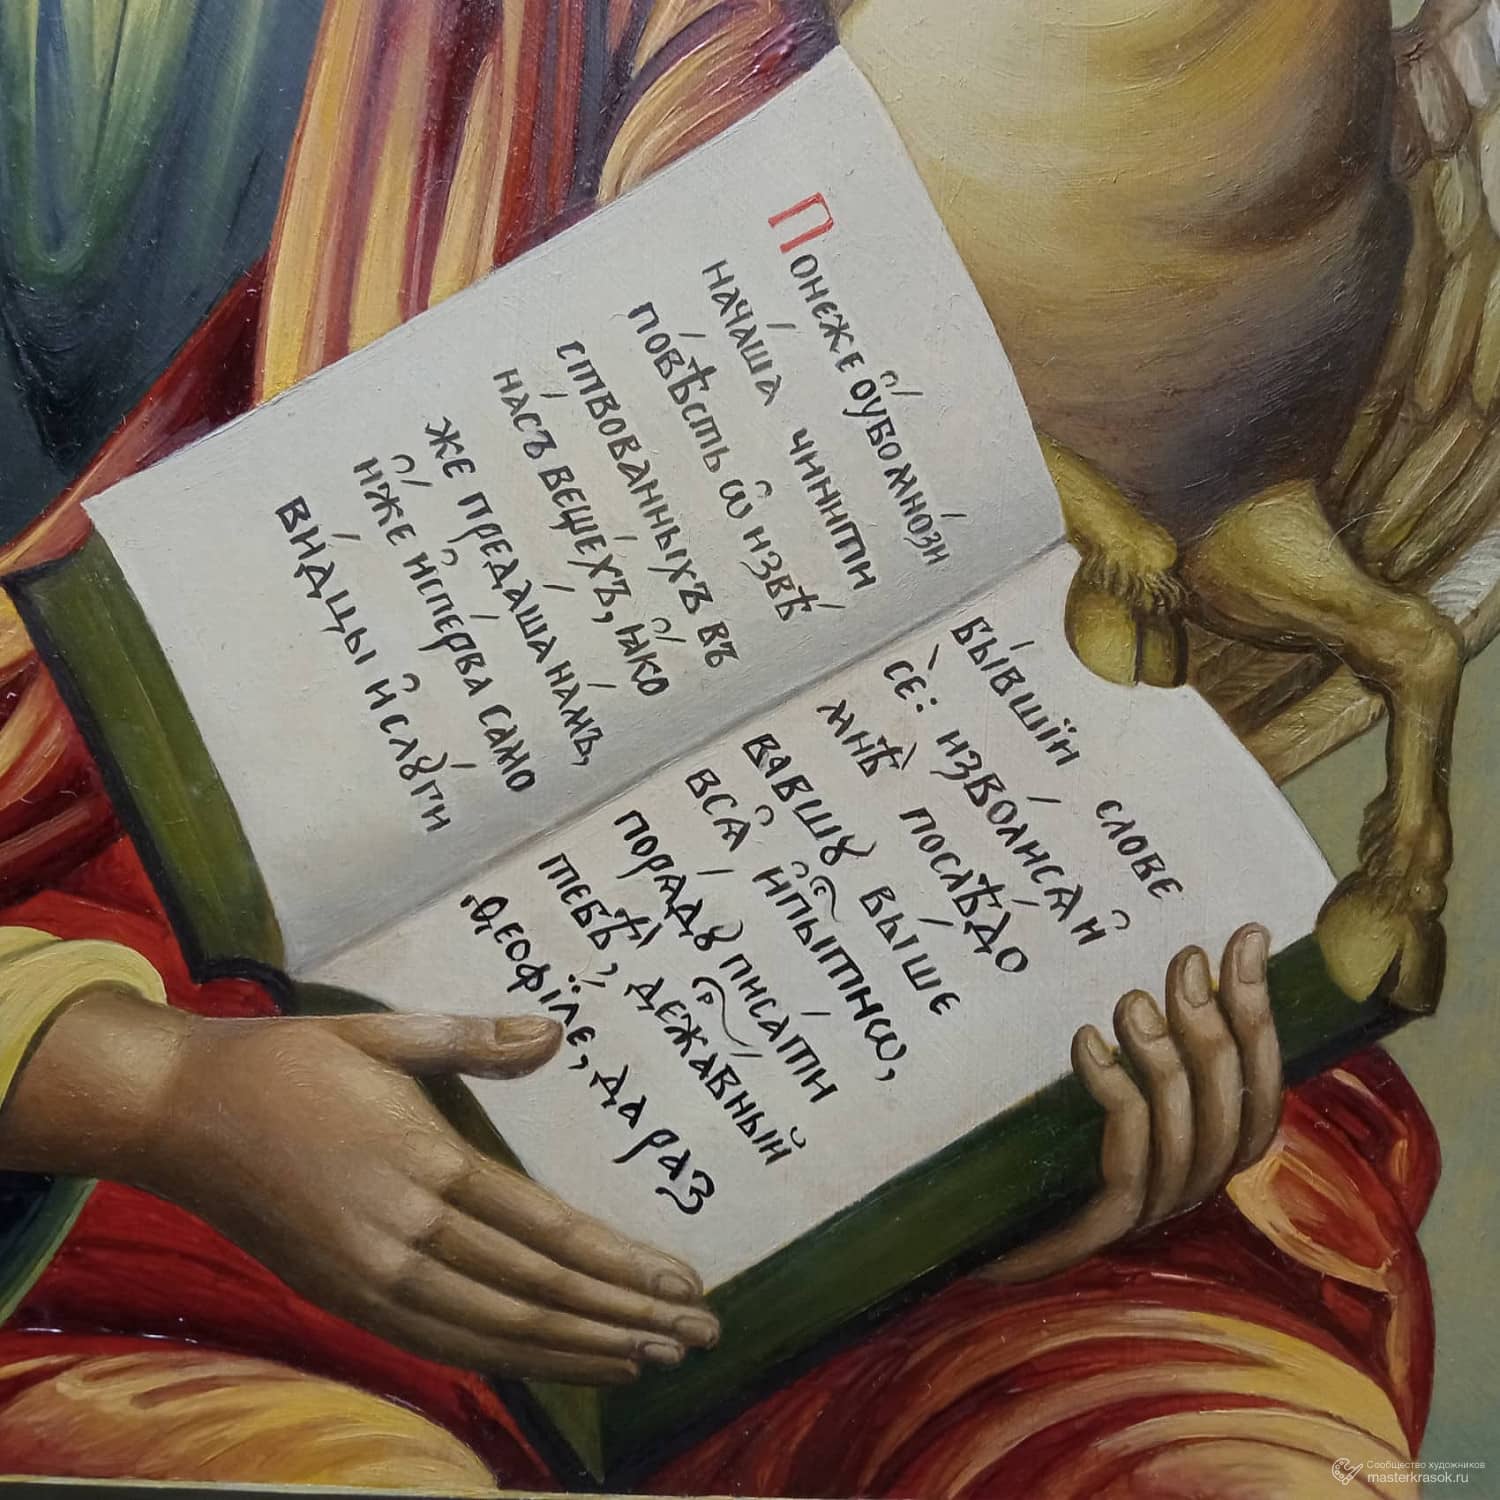 Понеже ᲂу҆́бо мно́зи
нача́ша чинити
по́вѣсть ѡ҆ извѣ́
ствованныхъ въ
на́съ веще́хъ, ꙗ҆́ко
же преда́ша на́мъ,
и҆̀же и҆спе́рва само
ви́дцы и҆ слꙋги́
бы́вшїи слове
сѐ: изво́лисѧ и҆
мнѣ̀ послѣ́до
вавшꙋ вы́ше
всѧ҆̑ и҆пы́тиѡ,
порѧ́дꙋ писа́ти
тебѣ̀, дежа́вный
Ѳеофїле, да раз
Сообщество художников
masterkrasok.ru